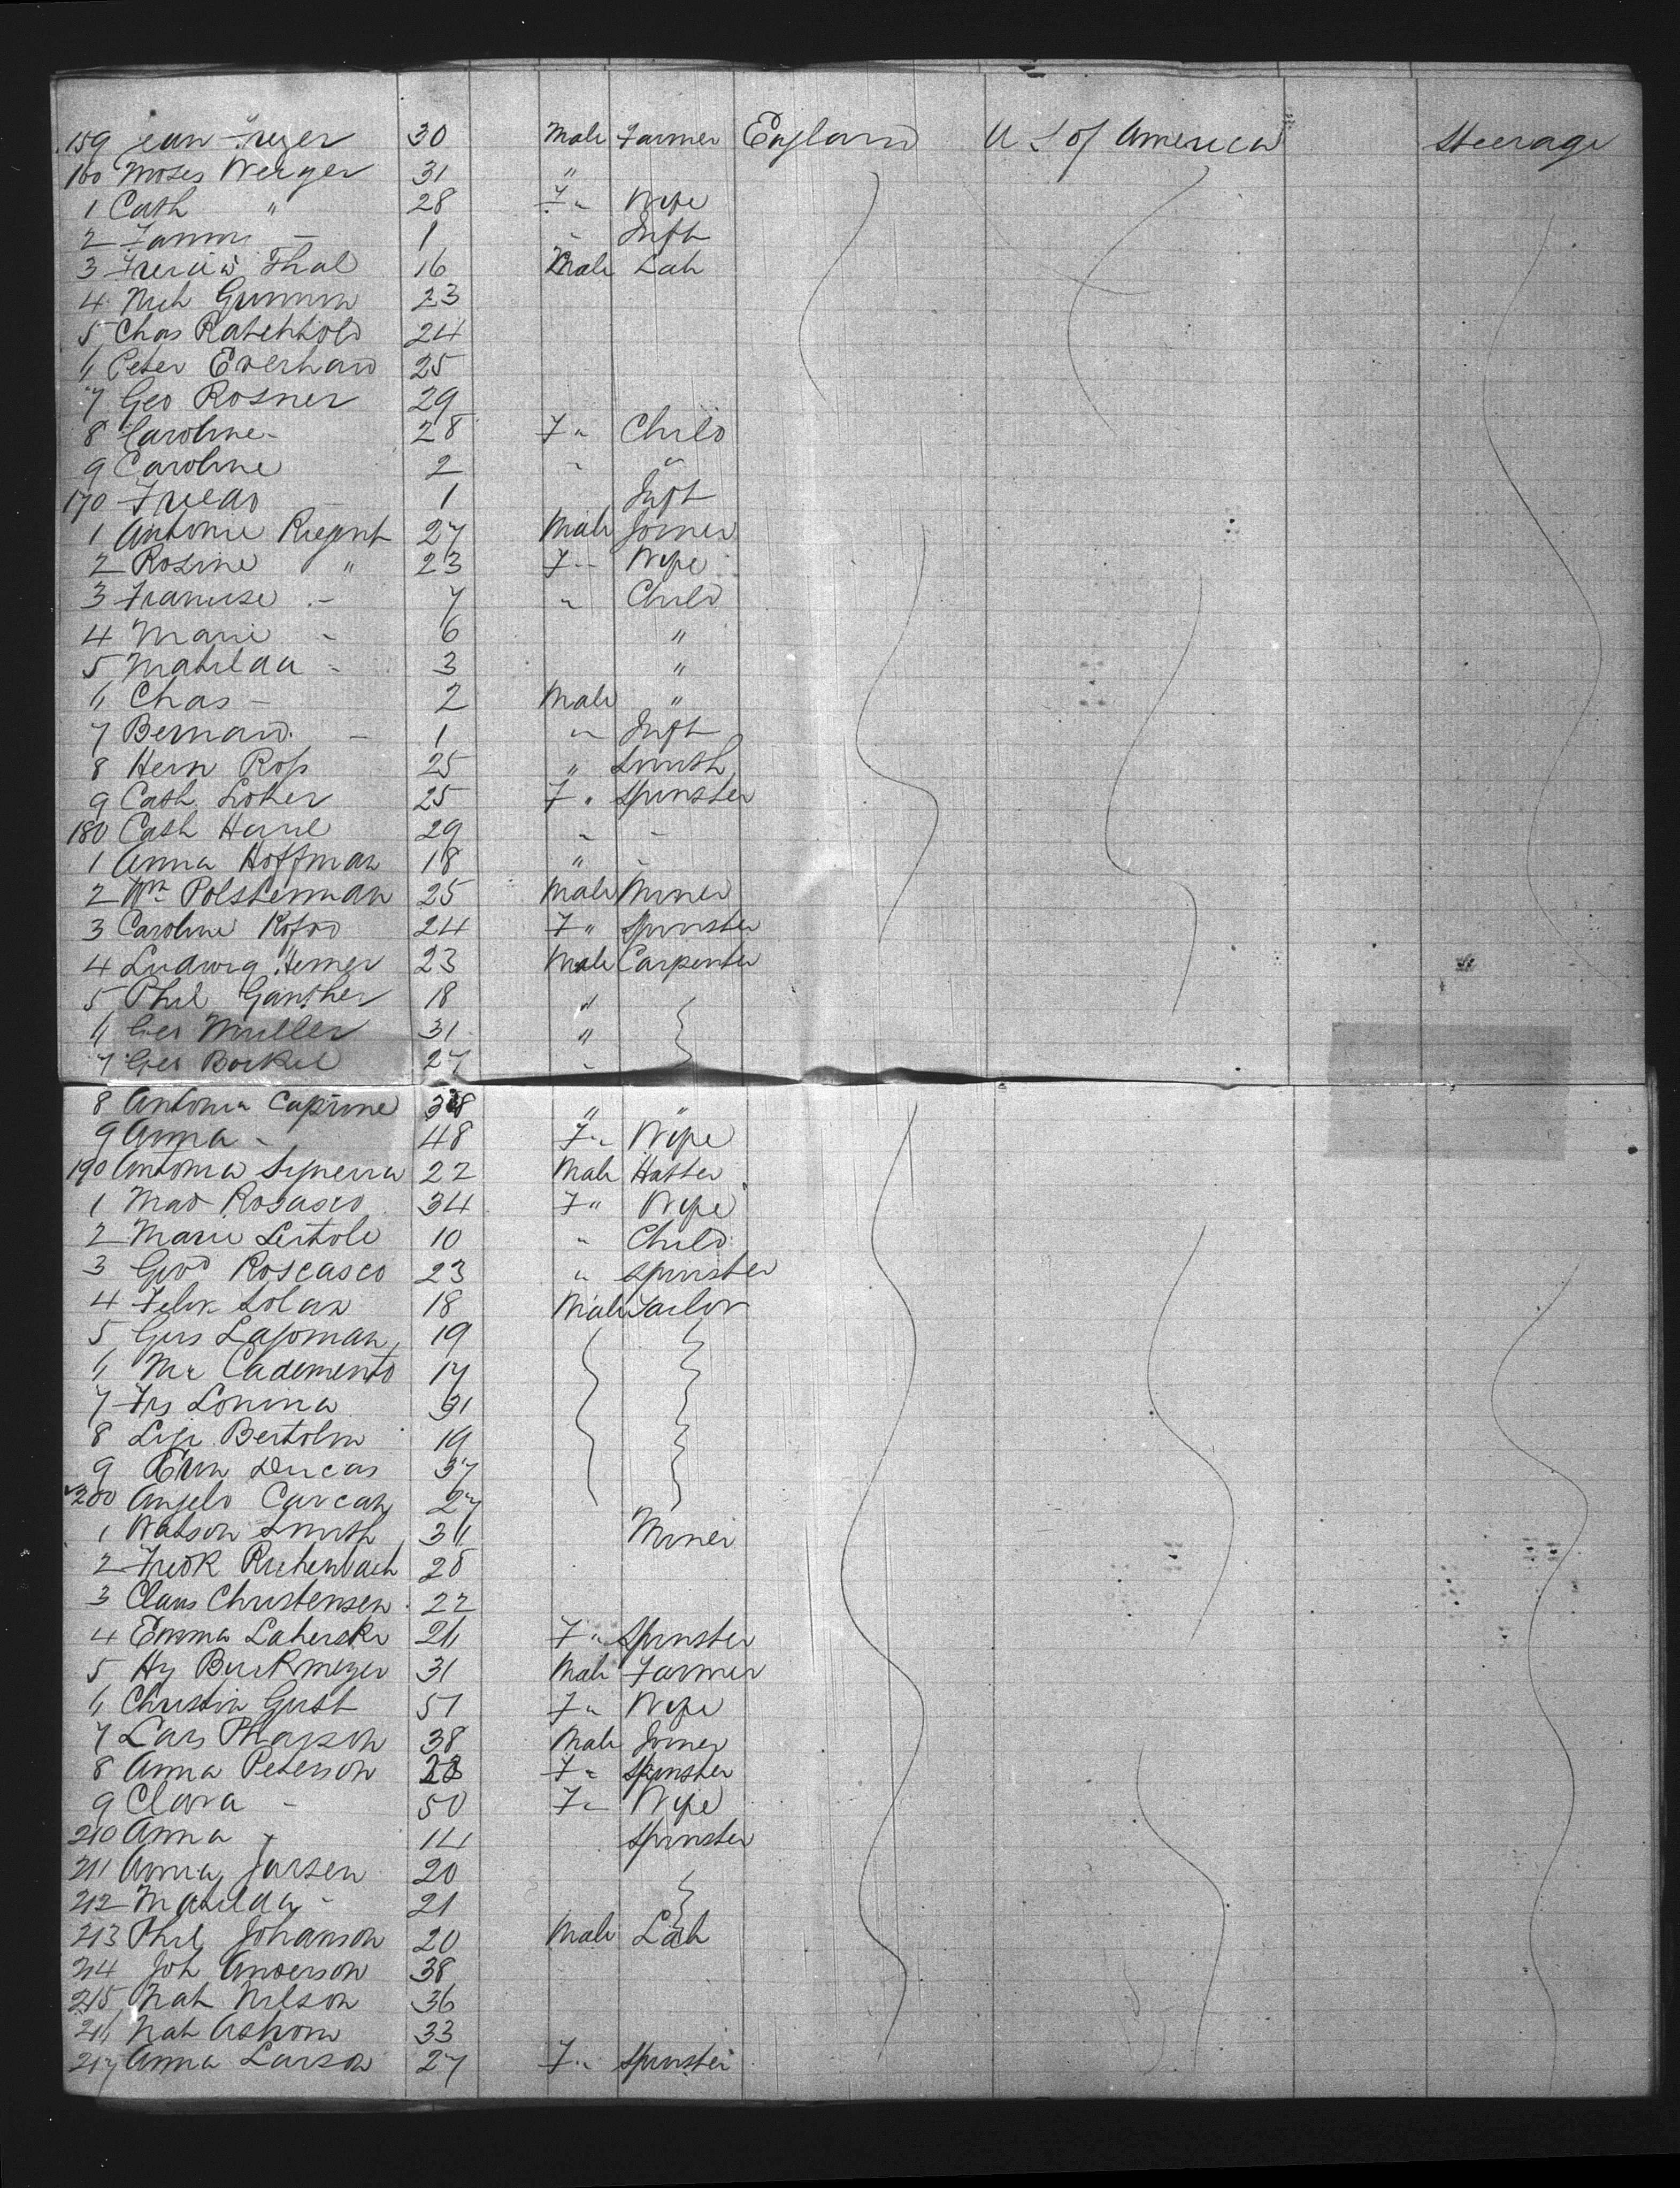 159 Jean Freyer 30 Male Farmer England U S of America Steerage
160 Moses Weiger 31 "
1 Cath " 28 F " Wife
2 Fanny - 1 " Inft
3 Thal 16 Male Lab
4 Nich 23
5 Chas 24
6 Peter Everhard 25
7 Geo Rosner 29
8 Caroline - 28 F " Child
9 Caroline 2 " "
170 Friedr - 1 Inft
1 Antonie 27 Male Joiner
2 Rosine " 23 F " Wife
3 Francise - 7 " Child
4 Marie - 6 "
5 Matilda - 3 "
6 Chas - 2 Male "
7 Bernard - 1 " Inft
8 Hern Ross 25 " Smith
9 Cath Lother 25 F " Spinster
180 Cath 29 " -
1 Anna Hoffman 18 " -
2 Wm Polsterman 25 Male Miner
3 Caroline 24 F " Spinster
4 Ludwig Hemer 23 Male Carpenter
5 Phil Ganther 18 "
6 Geo Muller 31 "
7 Geo Borkel 27 "
8 Antonia Caprine 38 " "
9 Anna - 48 F " Wife
190 Antonia 22 Male Hatter
1 Mad Rosasco 34 F " Wife
2 Marie 10 " Child
3 Giovd Roscasco 23 " Spinster
4 Felix Solan 18 Male Tailor
5 Gus 19
6 Mr Cademento 17
7 Frs Lonina 31
8 Bertolin 19
9 Ducas 37
200 Angelo Carcan 27
1 Watson Smith 36 Miner
2 Fredk Richenbach 28
3 Claus Christensen 22
4 Emma Laherski 26 F " Spinster
5 Hy Burkmeyer 31 Male Farmer
6 Christin Gust 51 F " Wife
7 Lars 38 Male Joiner
8 Anna Peterson 28 F " Spinster
9 Clara - 50 F " Wife
210 Anna - 14 Spinster
211 Anna Jarsen 20
212 Matilda - 21
213 Phil Johanson 20 Male Lab
214 Joh Anderson 38
215 Nath Nilson 36
216 Nath 33
217 Anna Larson 27 F " Spinster